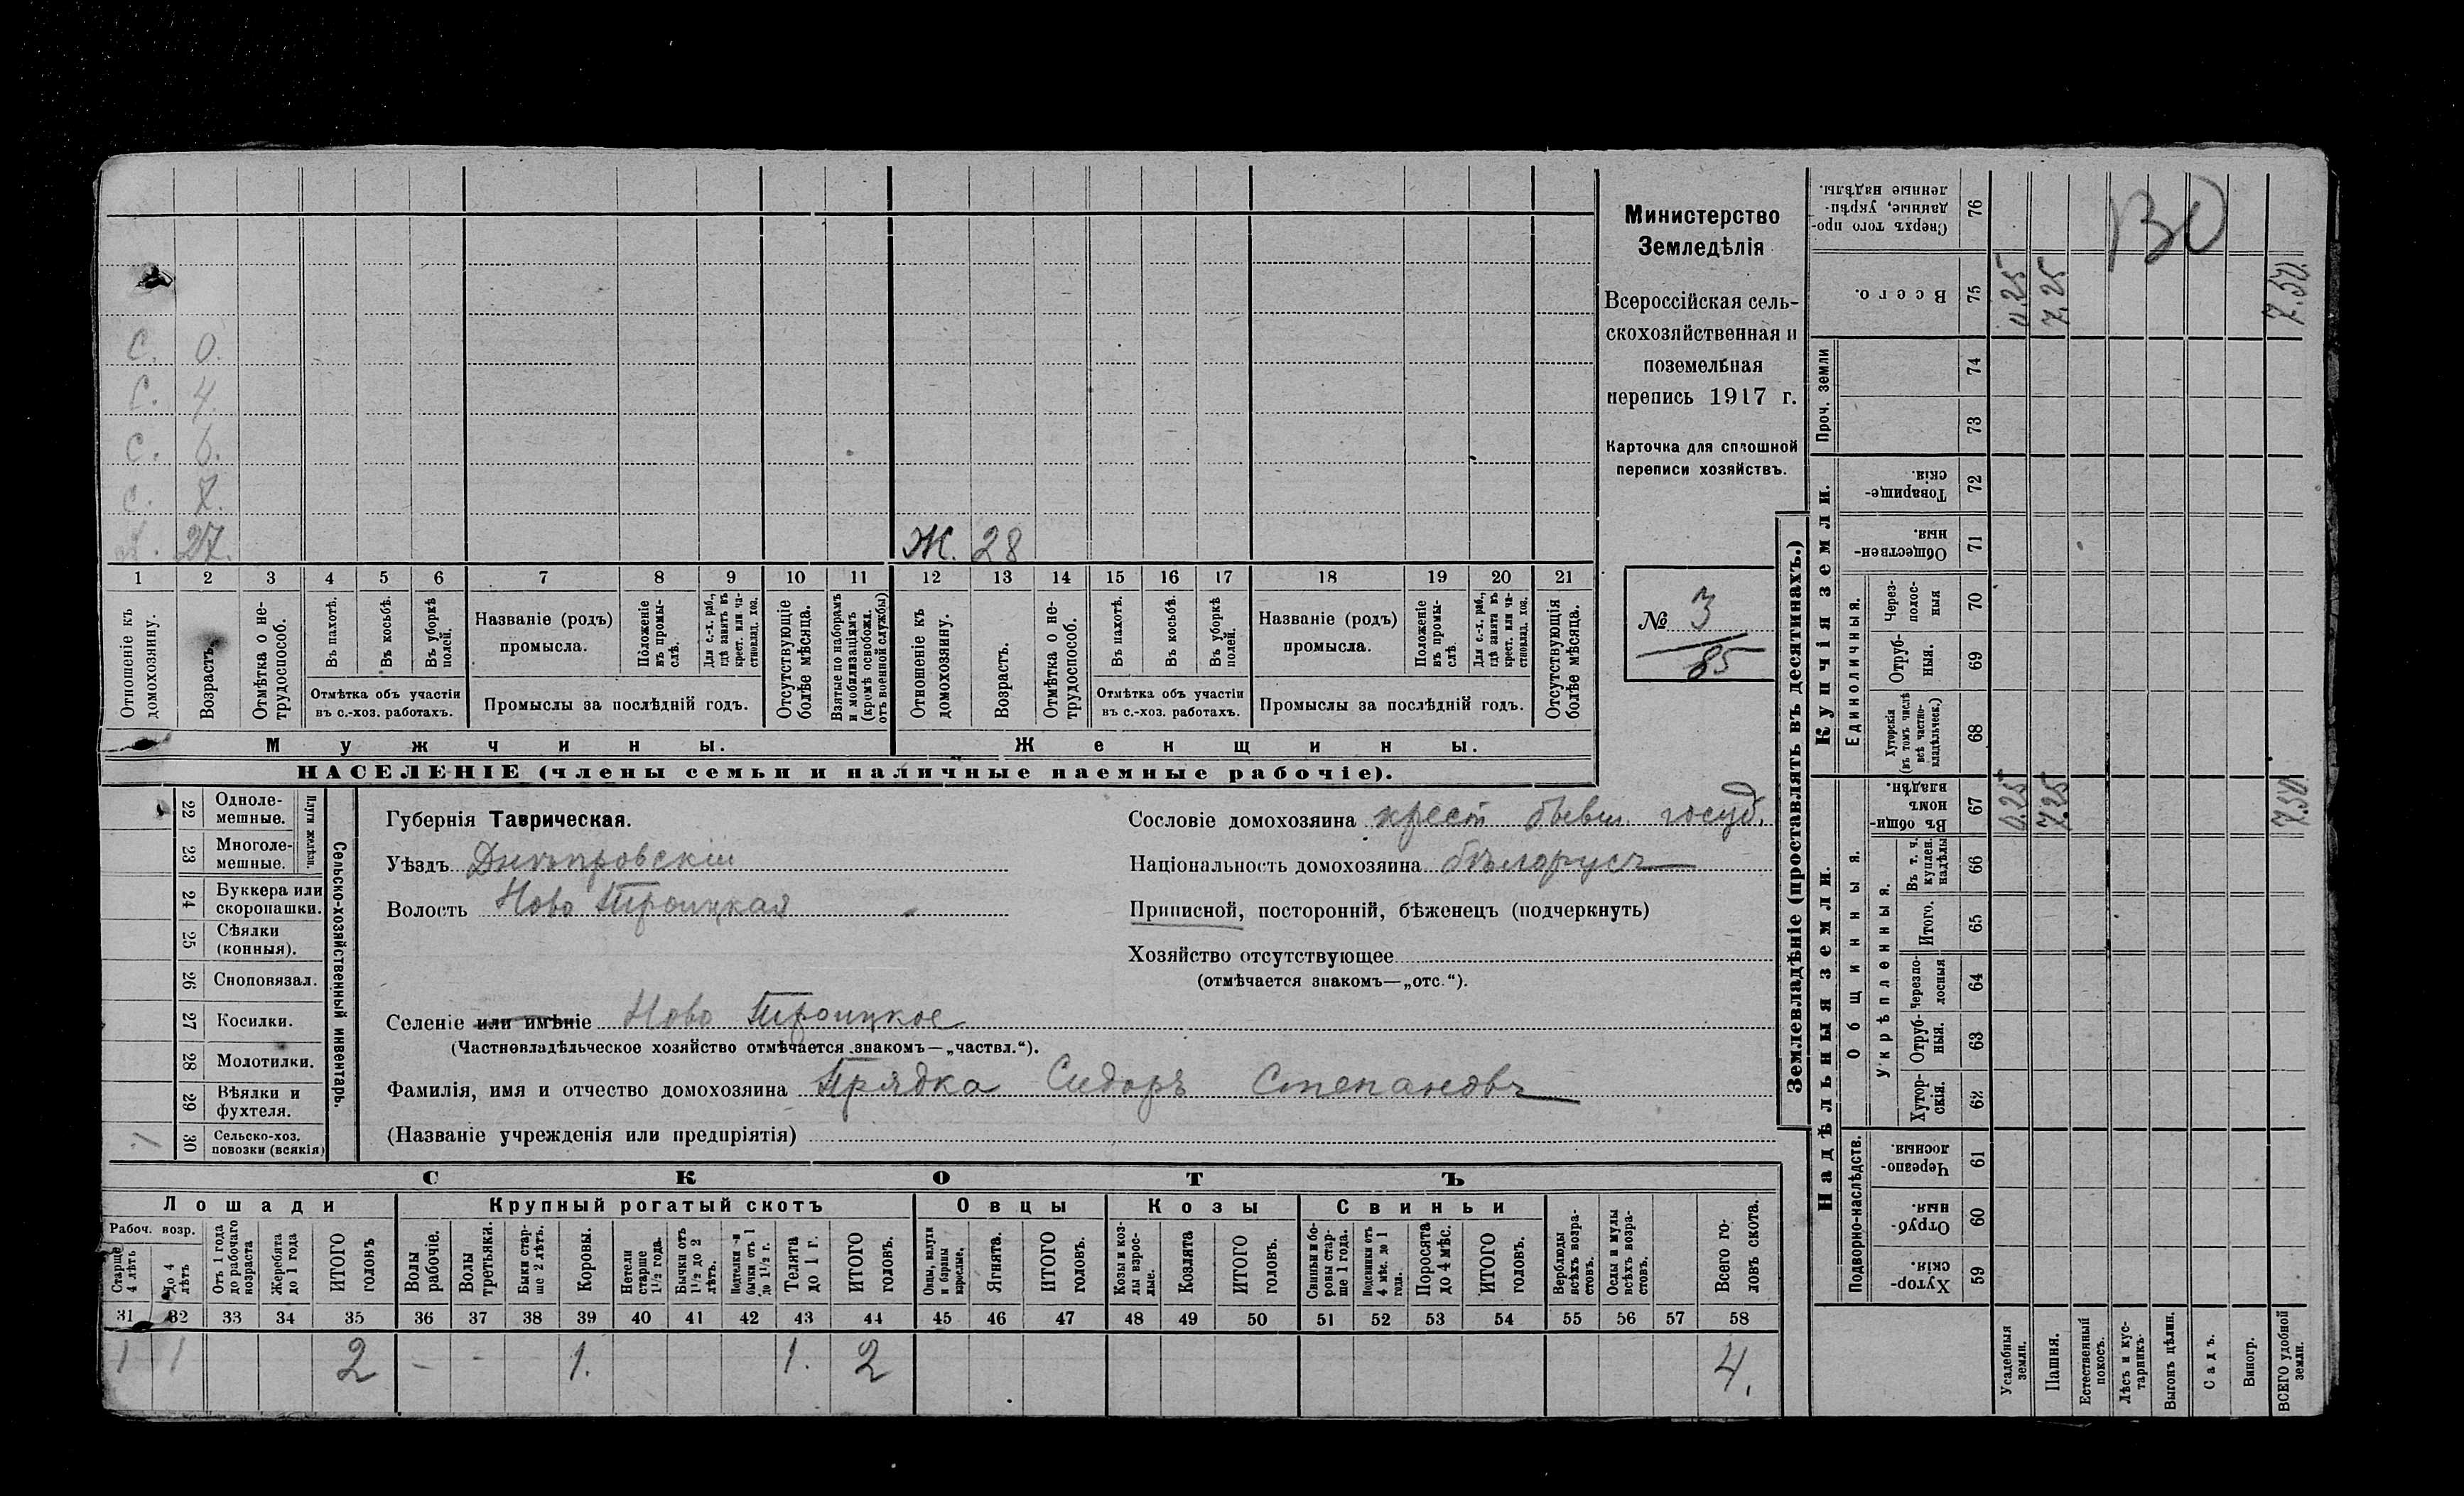 С. 0.
С. 4.
С. 6.
С. 7.
27. Ж. 28
1 2 3 4 5 6 7 8 9 10 11 12 13 14 15 16 17 18 19 20 21
Отношеніе къ домохозяину.
Возрастъ.
Отмѣтка о не-трудоспособ.
Въ пахотѣ.
Въ косьбѣ.
Въ уборкѣ полей.
Отмѣтка объ участіи
въ с.-хоз. работахъ.
Названіе (родъ)
промысла.
Положеніе въ промы-слѣ.
Для с.-х. раб., гдѣ занятъ въ крест. или ча-стновлад. хоз.
Промыслы за послѣдній годъ.
Отсутствующіе болѣе мѣсяца.
Взятые по наборамъ и мобилизаціямъ (кромѣ освобожд. отъ военной службы)
Отношеніе къ домохозяину.
Возрастъ.
Отмѣтка о не-трудоспособ.
Въ пахотѣ.
Въ косьбѣ.
Въ уборкѣ полей.
Отмѣтка объ участіи
въ с.-хоз. работахъ.
Названіе (родъ)
промысла.
Положеніе въ промы-слѣ.
Для с.-х. раб., гдѣ занята въ крест. или ча-стновлад. хоз.
Промыслы за послѣдній годъ.
Отсутствующія болѣе мѣсяца.
Мужчины. Женщины.
НАСЕЛЕНІЕ (члены семьи и наличные наемные рабочіе).
Министерство
Земледѣлія
Всероссійская сель-
скохозяйственная и
поземельная
перепись 1917 г.
Карточка для сплошной
переписи хозяйствъ.
№ 3
85
22 Одноле-мешные.
23 Многоле-мешные.
Плуги желѣзн.
24 Буккера или скоропашки.
25 Сѣялки (конныя).
26 Сноповязал.
27 Косилки.
28 Молотилки.
29 Вѣялки и фухтеля.
30 Сельско-хоз. повозки (всякія)
Сельско-хозяйственный инвентарь.
Губернія Таврическая.
Уѣздъ Днѣпровскій
Волость Ново Троицкая
Сословіе домохозяина крест бывш. госуд.
Національность домохозяина бѣлорусъ
Приписной, посторонній, бѣженецъ (подчеркнуть)
Хозяйство отсутствующее
(отмѣчается знакомъ—„отс.“).
Селеніе или имѣніе Ново Троицкое
(Частновладѣльческое хозяйство отмѣчается знакомъ—„частвл.“).
Фамилія, имя и отчество домохозяина Прядка Сидоръ Степановъ
(Названіе учрежденія или предпріятія)
СКОТЪ
Лошади Крупный рогатый скотъ Овцы Козы Свиньи
Рабоч. возр.
Старше 4 лѣтъ
До 4 лѣтъ
Отъ 1 года до рабочаго возраста
Жеребята до 1 года
ИТОГО головъ
Волы рабочіе.
Волы третьяки.
Быки стар-ше 2 лѣтъ.
Коровы.
Нетели старше 1½ года.
Бычки отъ 1½ до 2 лѣтъ.
Подтелки и бычки отъ 1 до 1½ г.
Телята до 1 г.
ИТОГО головъ.
Овцы, валухи и бараны взрослые.
Ягнята.
ИТОГО головъ.
Козы и коз-лы взрос-лые.
Козлята
ИТОГО головъ.
Свиньи и бо-ровы стар-ше 1 года.
Подсвинки отъ 4 мѣс. до 1 года.
Поросята до 4 мѣс.
ИТОГО головъ.
Верблюды всѣхъ возра-стовъ.
Ослы и мулы всѣхъ возра-стовъ.
Всего го-ловъ скота.
31 32 33 34 35 36 37 38 39 40 41 42 43 44 45 46 47 48 49 50 51 52 53 54 55 56 57 58
1 1 2 - - 1. 1. 2 4.
Землевладѣніе (проставлять въ десятинахъ.)
Надѣльныя земли. Купчія земли. Проч. земли
Подворно-наслѣдств. Общинныя. Укрѣпленныя. Единоличныя.
Хутор-скія. 59
Отруб-ныя. 60
Черезпо-лосныя. 61
Хутор-скія. 62
Отруб-ныя. 63
Черезпо-лосныя 64
Итого. 65
Въ т. ч. куплен. надѣлы 66
Въ общин-номъ владѣн. 67
Хуторскія (въ томъ числѣ всѣ частно-владѣльческ.) 68
Отруб-ныя. 69
Через-полос-ныя 70
Обществен-ныя. 71
Товарище-скія. 72
73
74
Всего. 75
Сверхъ того про-данные, укрѣп-ленные надѣлы. 76
Усадебныя земли. 0.25 0.25
Пашня. 7.25 7.25
Естественный покосъ.
Лѣсъ и кус-тарникъ.
Выгонъ цѣлин.
Садъ.
Виногр.
ВСЕГО удобной земли. 7.50 7.50.
ВО